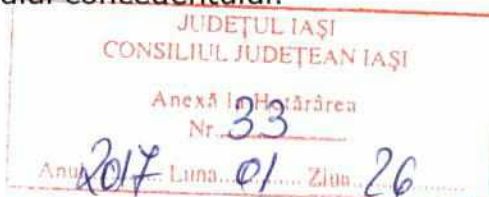 concedentului.
JUDEŢUL IAŞI
CONSILIUL JUDEŢEAN IAŞI
Anexă la Hotărârea
Nr. 33
Anul 2017 Luna 01 Ziua 26